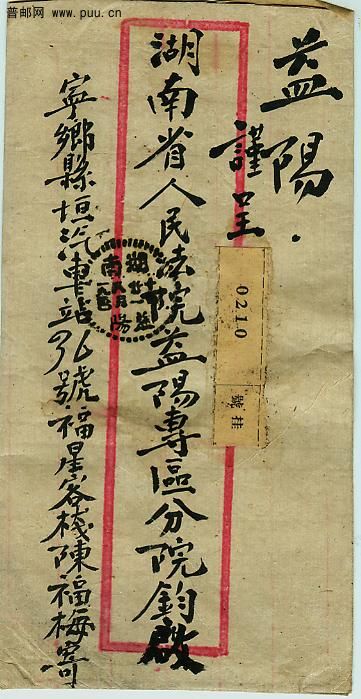 普邮网 www.puu.cn
益陽.
謹呈
湖南省人民法院益陽專區分院鈞啟
寧鄉縣垣汽車站36號福星客棧陳福梅寄
湖南
益陽
0210
掛號